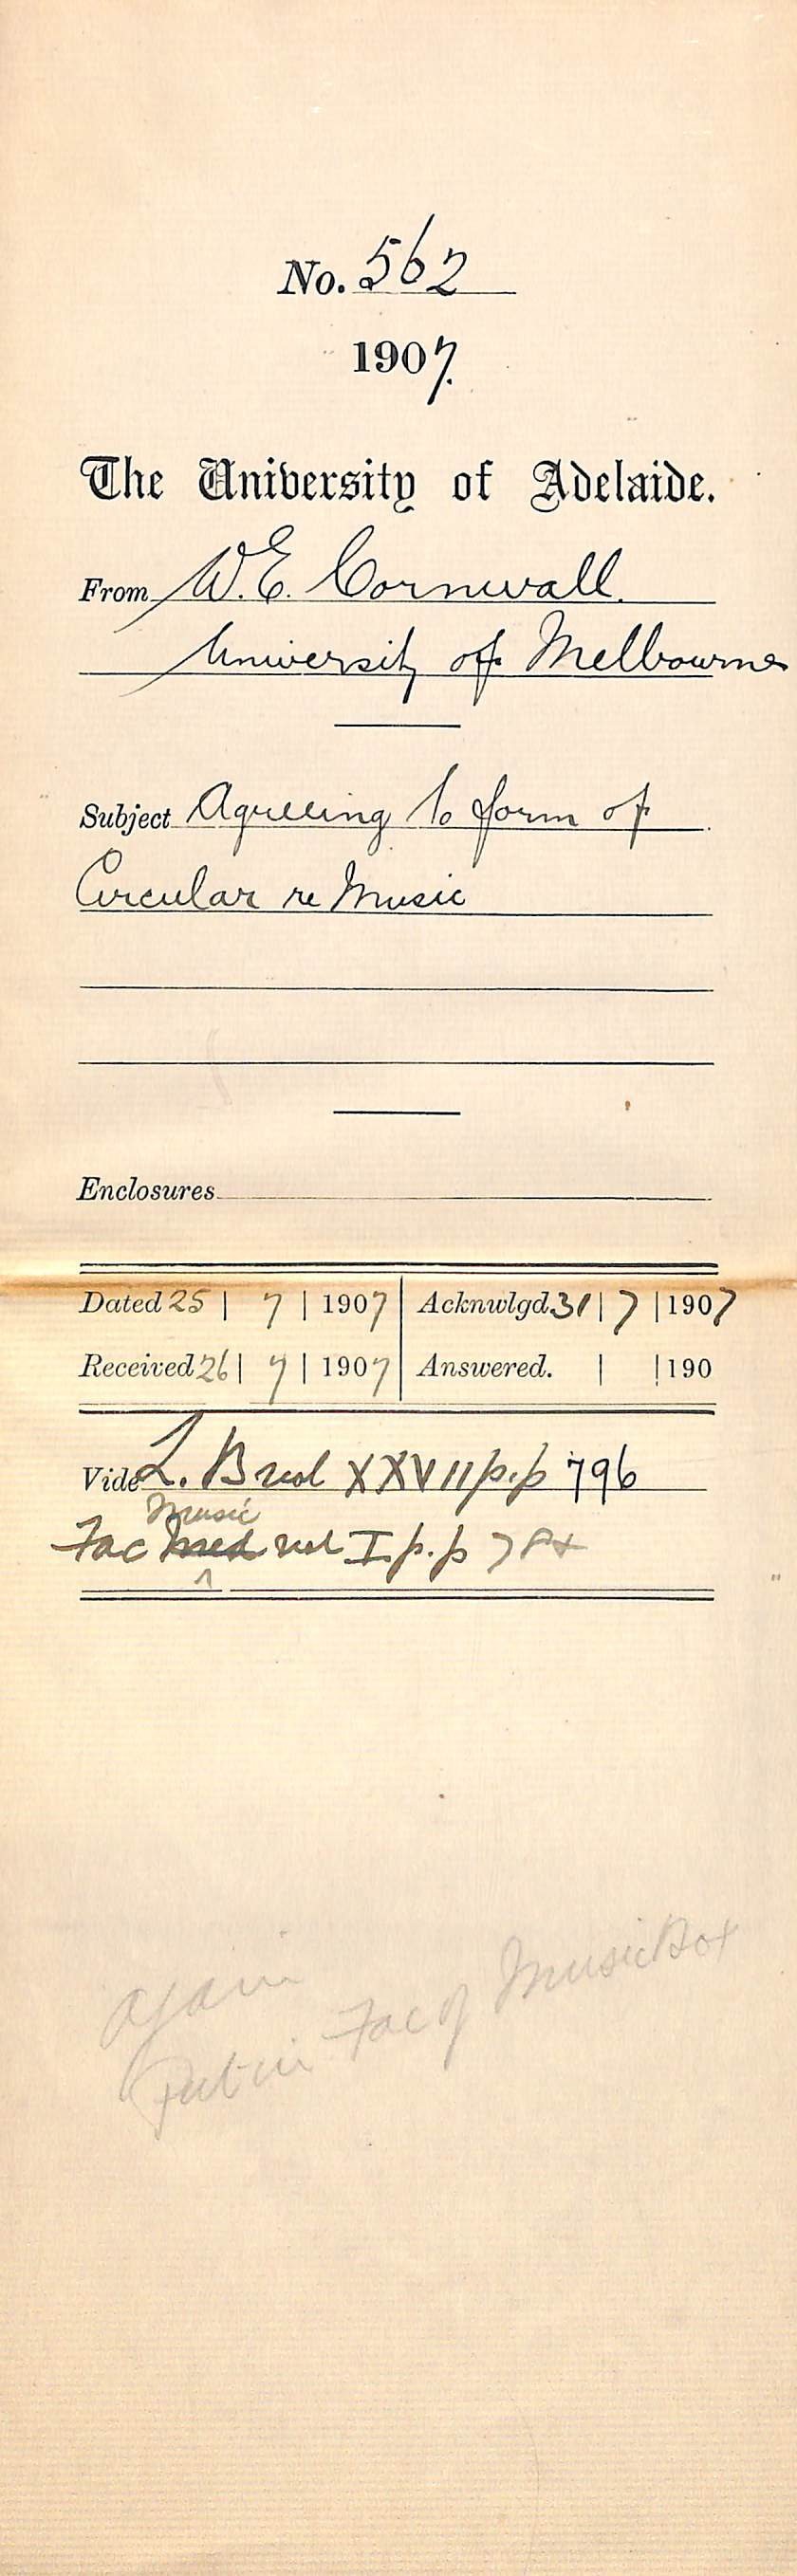 No. 562
1907.
The University of Adelaide.
From W. E. Cornwall.
University of Melbourne
Subject Agreeing to form of
Circular re Music
Enclosures
Dated 25 | 7 | 1907 | Acknwlgd. 31 | 7 | 1907
Received 26 | 7 | 1907 | Answered. | | 190
Vide L. B vol XXVII p.p 796
Music
Fac Med vol I p.p 78
again
Put in Fac of Music Box